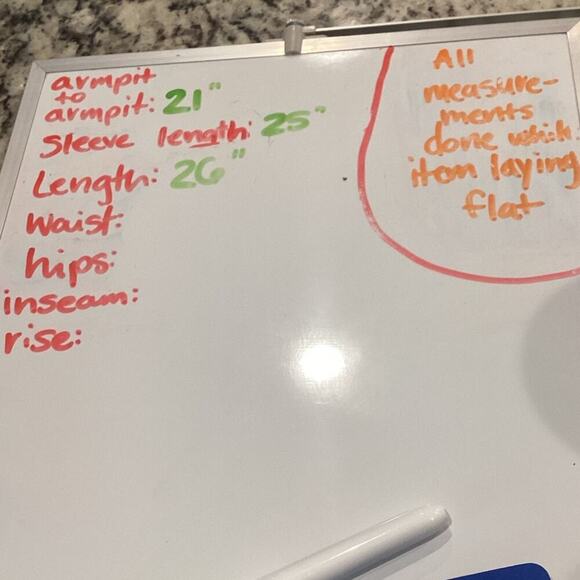 armpit
to
armpit: 21"
Sleeve length: 25"
Length: 26"
Waist:
hips:
inseam:
rise:
All
measure-
ments
done
item laying
flat